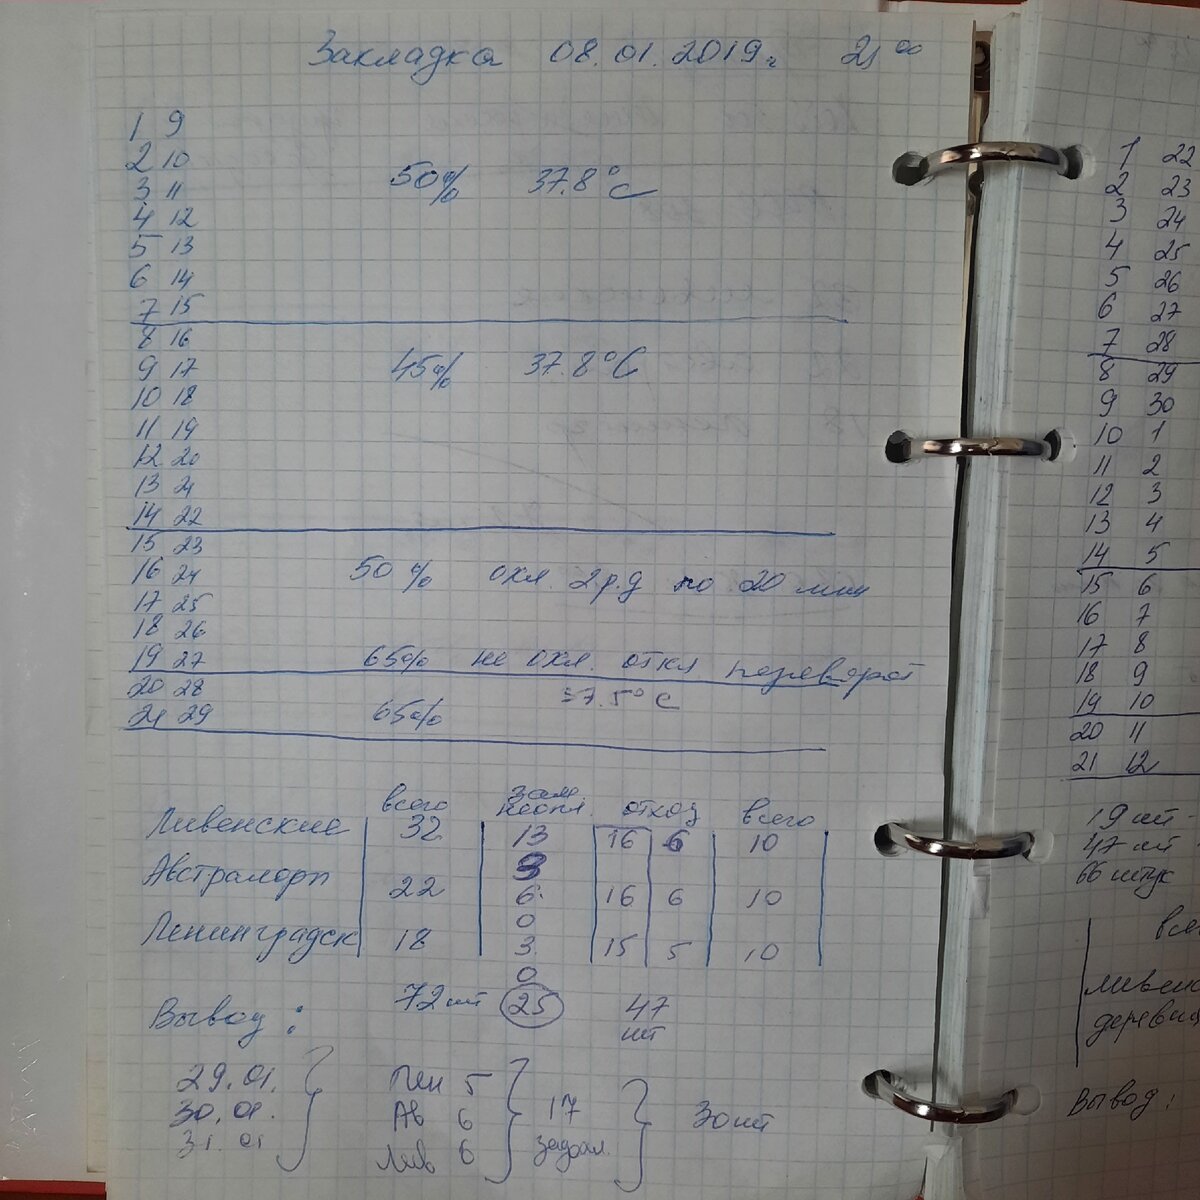 Закладка 08.01.2019г 21 00
1 9
2 10
3 11
4 12
5 13
6 14
7 15
50% 37.8°C
8 16
9 17
10 18
11 19
12 20
13 21
14 22
45% 37.8°C
15 23
16 24
17 25
18 26
19 27
50% охл. 2р.д по 20 мин
65% не охл. откл переворот
20 28
21 29
65% 37.5°C
всего зам неопл. отход всего
Ливенские 32 13 16 6 10
3
Австралорп 22 6 16 6 10
0
Ленинградск 18 3 15 5 10
0
72 шт 25 47 шт
Вывод:
29.01.
30.01.
31.01
Лен 5
Ав 6
Лив 6
17 задохл.
30 шт
1 22
2 23
3 24
4 25
5 26
6 27
7 28
8 29
9 30
10 1
11 2
12 3
13 4
14 5
15 6
16 7
17 8
18 9
19 10
20 11
21 12
19 шт -
47 шт -
66 штук
Вывод: